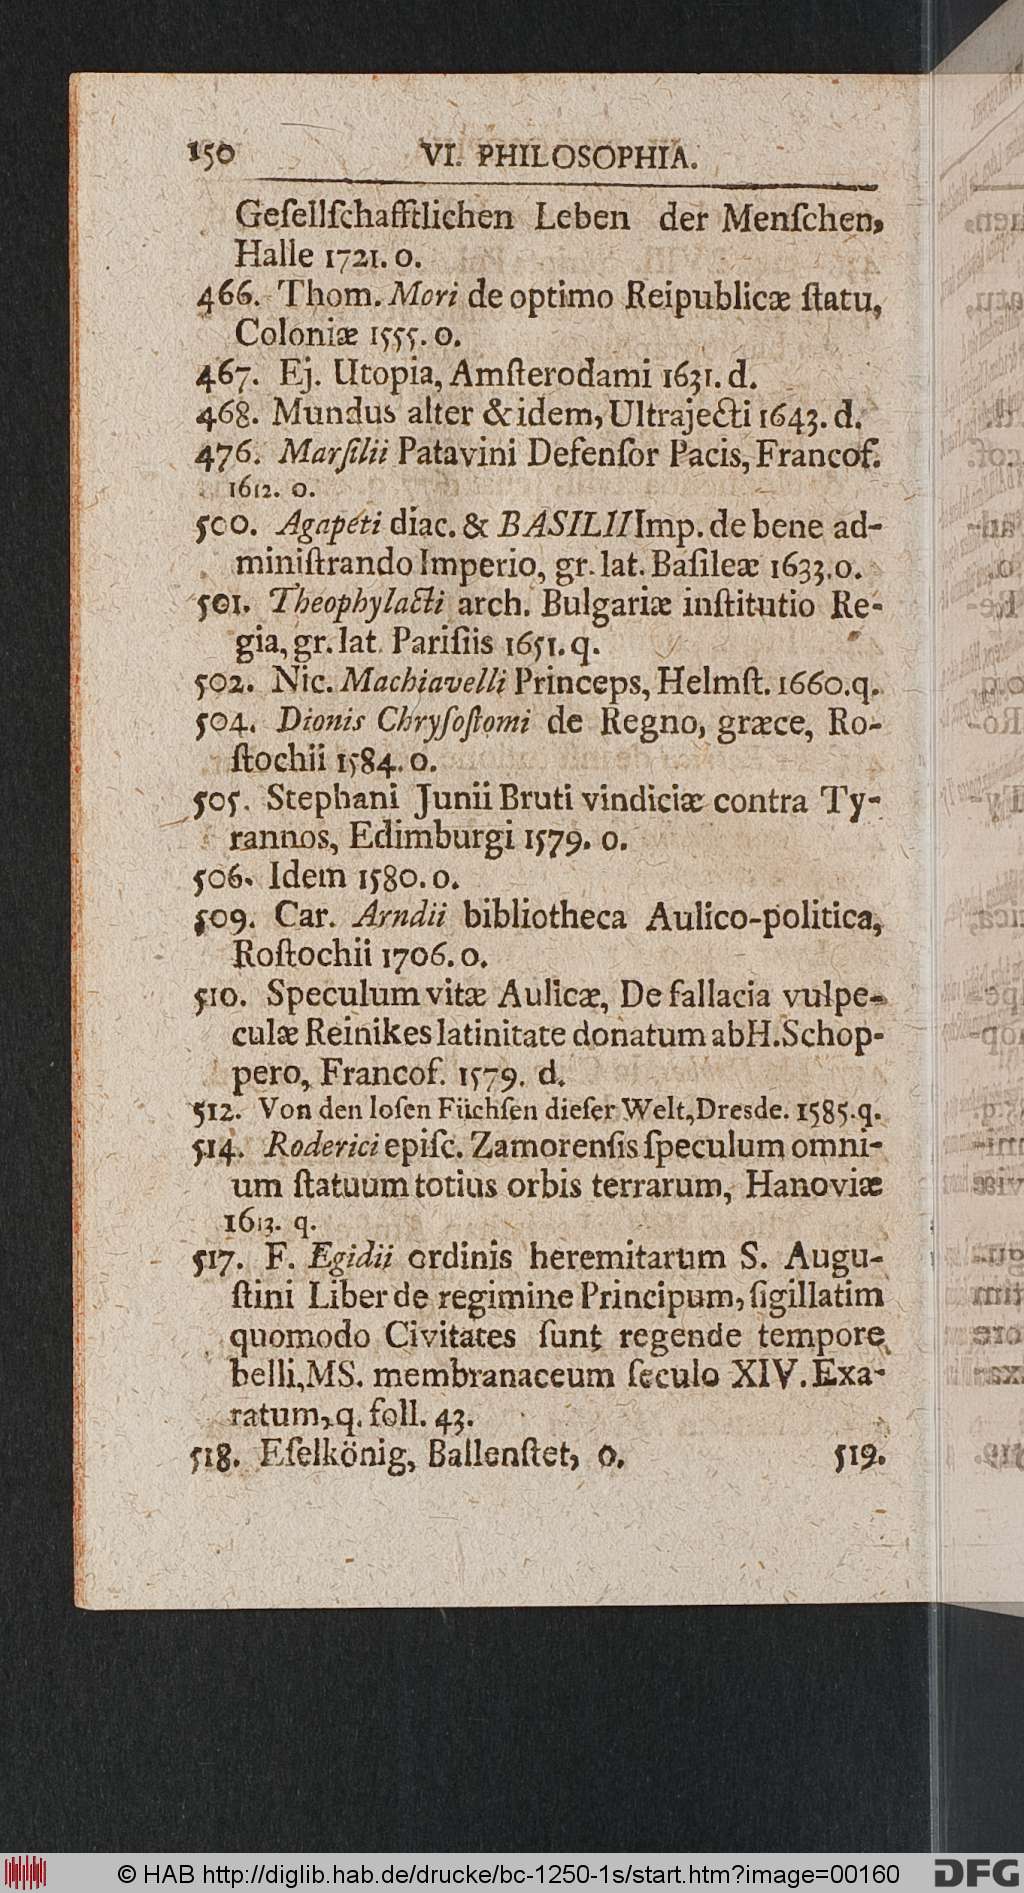 150 VI. PHILOSOPHIA.
Geſellſchafftlichen Leben der Menſchen,
Halle 1721. o.
466. Thom. Mori de optimo Reipublicæ ſtatu,
Coloniæ 1555. o.
467. Ej. Utopia, Amſterodami 1631. d.
468. Mundus alter & idem, Ultrajecti 1643. d.
476. Marſilii Patavini Defenſor Pacis, Francof.
1612. o.
500. Agapeti diac. & BASILII Imp. de bene ad-
miniſtrando Imperio, gr. lat. Baſileæ 1633. o.
501. Theophylacti arch. Bulgariæ inſtitutio Re-
gia, gr. lat. Pariſiis 1651. q.
502. Nic. Machiavelli Princeps, Helmſt. 1660. q.
504. Dionis Chryſoſtomi de Regno, græce, Ro-
ſtochii 1584. o.
505. Stephani Junii Bruti vindiciæ contra Ty-
rannos, Edimburgi 1579. o.
506. Idem 1580. o.
509. Car. Arndii bibliotheca Aulico-politica,
Roſtochii 1706. o.
510. Speculum vitæ Aulicæ, De fallacia vulpe-
culæ Reinikes latinitate donatum ab H. Schop-
pero, Francof. 1579. d.
512. Von den loſen Füchſen dieſer Welt, Dresde. 1585. q.
514. Roderici epiſc. Zamorenſis ſpeculum omni-
um ſtatuum totius orbis terrarum, Hanoviæ
1613. q.
517. F. Egidii ordinis heremitarum S. Augu-
ſtini Liber de regimine Principum, ſigillatim
quomodo Civitates ſunt regende tempore
belli, MS. membranaceum ſeculo XIV. Exa-
ratum, q. foll. 43.
518. Eſelkönig, Ballenſtet, o. 519.
© HAB http://diglib.hab.de/drucke/bc-1250-1s/start.htm?image=00160 DFG